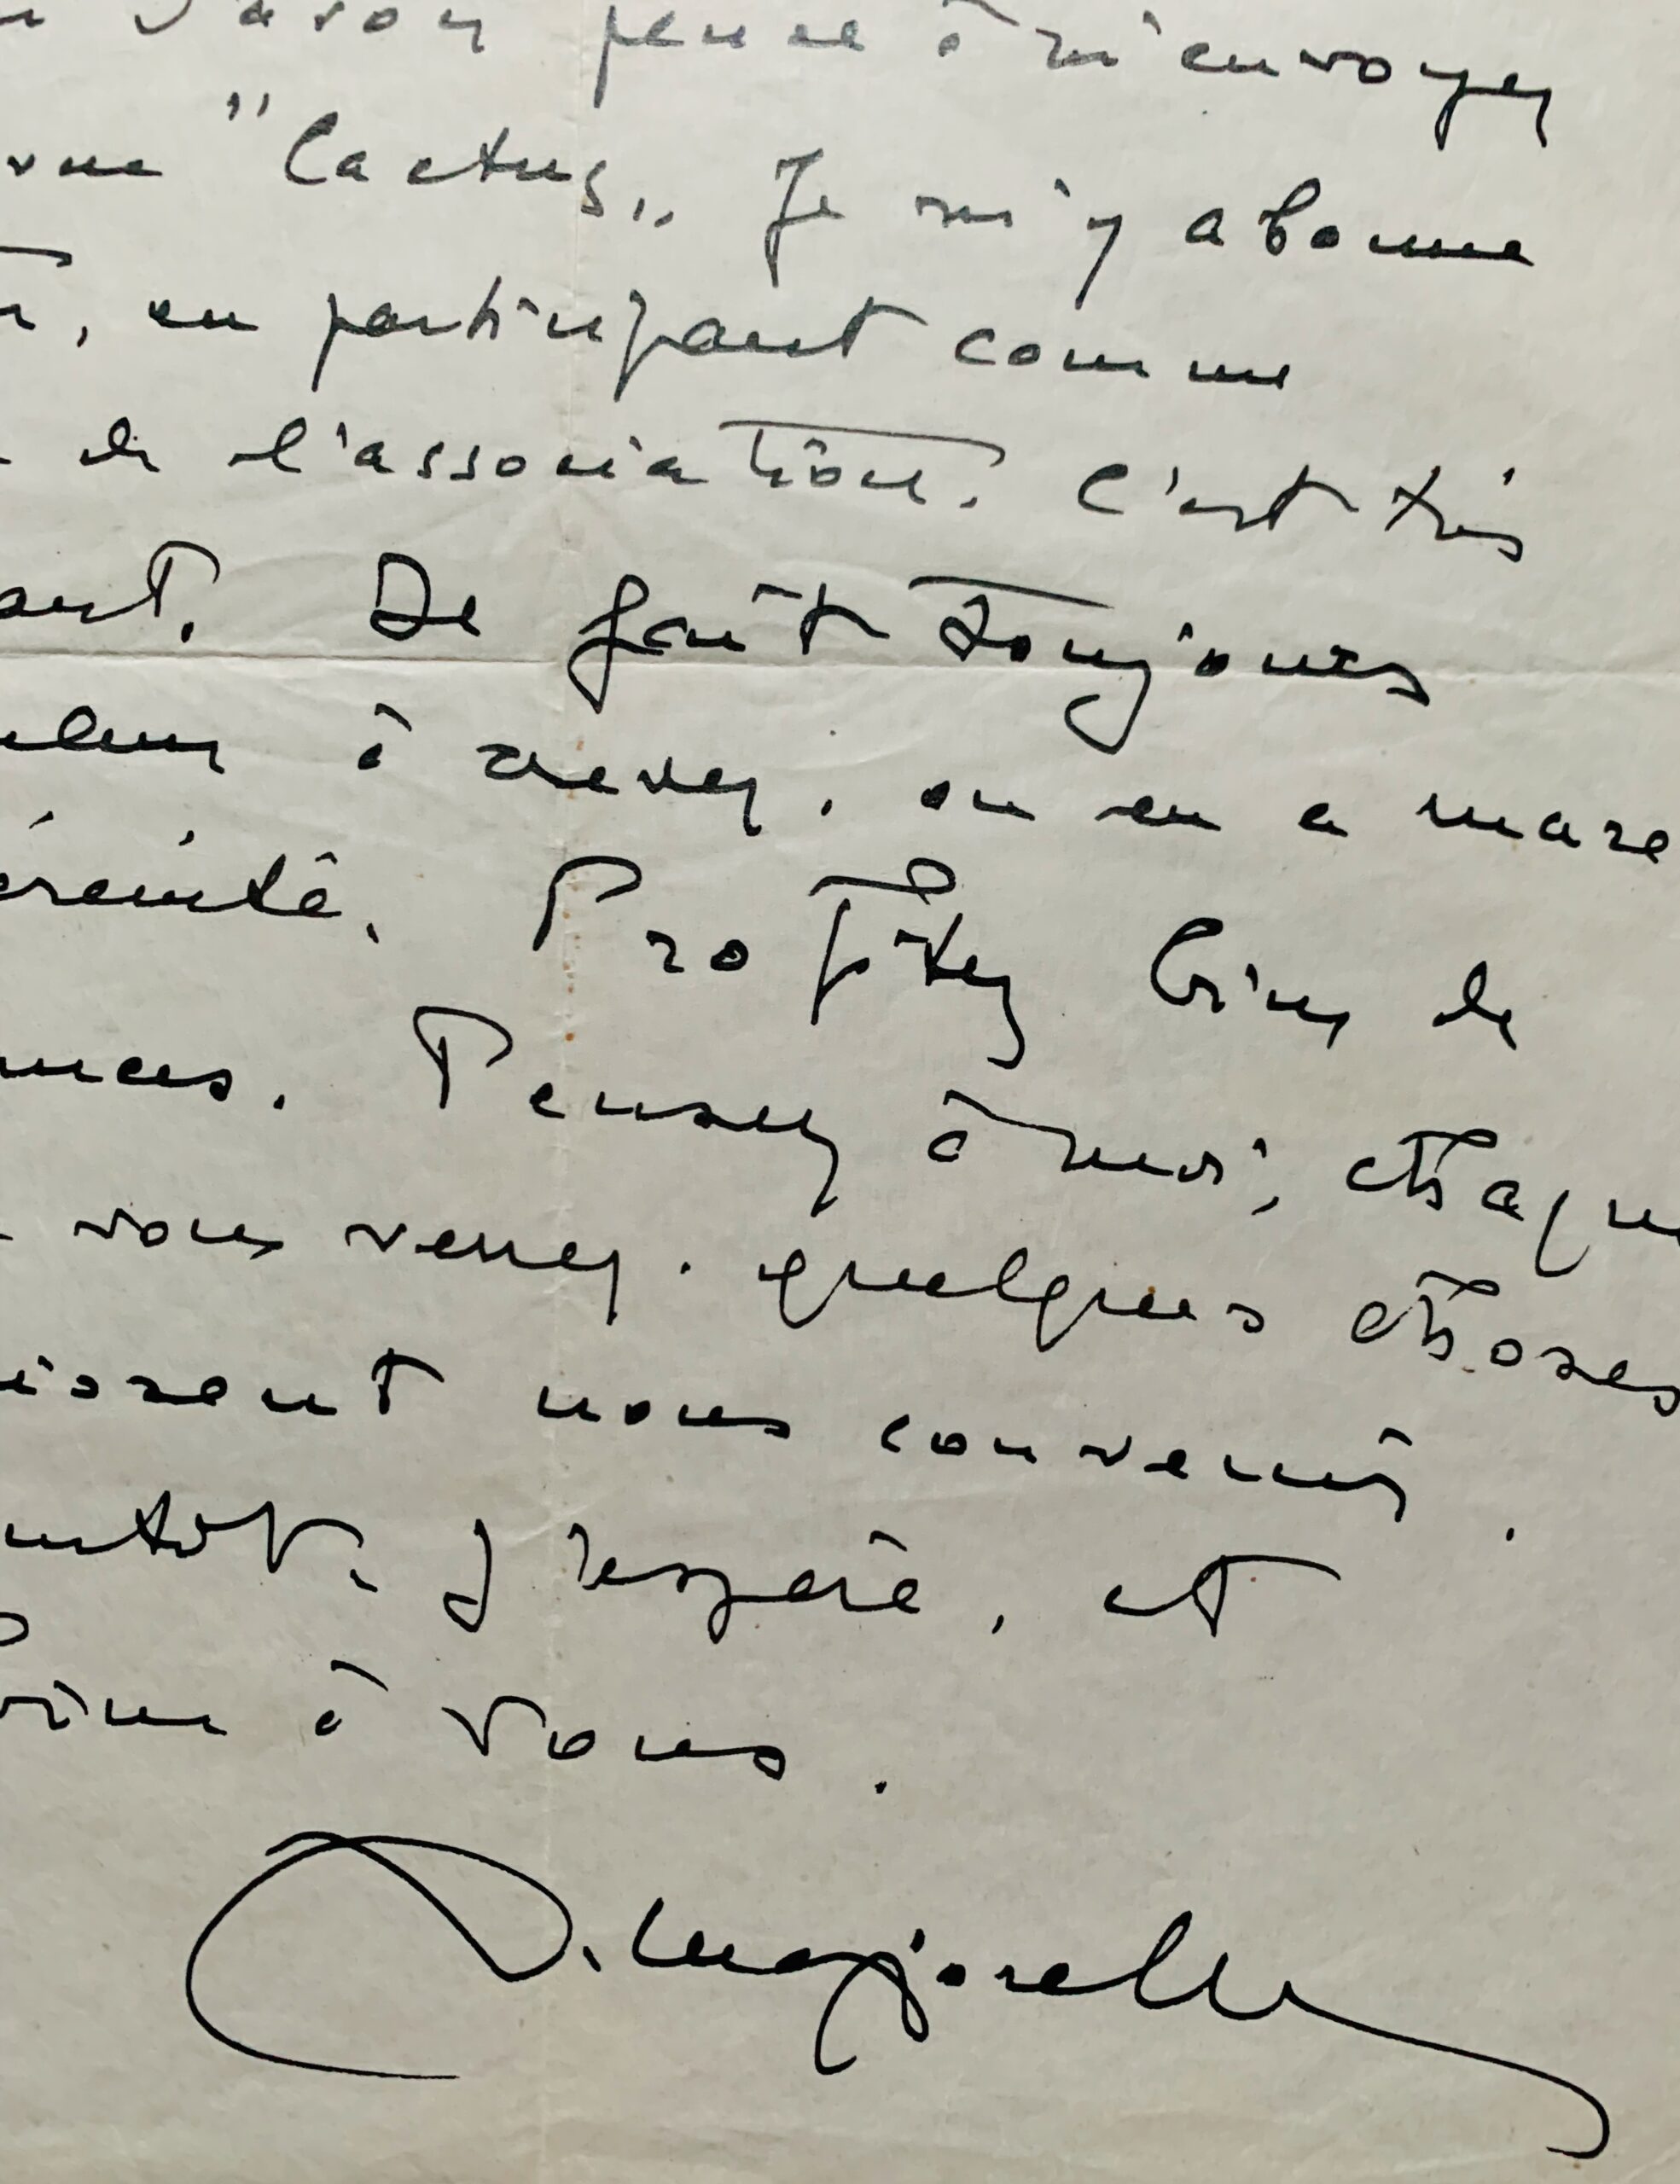 d'avoir pensé à m'envoyer
vue "Cactus„ Je m'y abonne
, en participant comme
de l'association. C'est très
ant. Il fait toujours
aleur à crever, on en a marre
éreinté. Profitez bien de
ances. Pensez à moi, chaque
vous verrez. quelques choses
issent nous convenir.
entôt, j'espère, et
bien à vous.
J. Majorelle